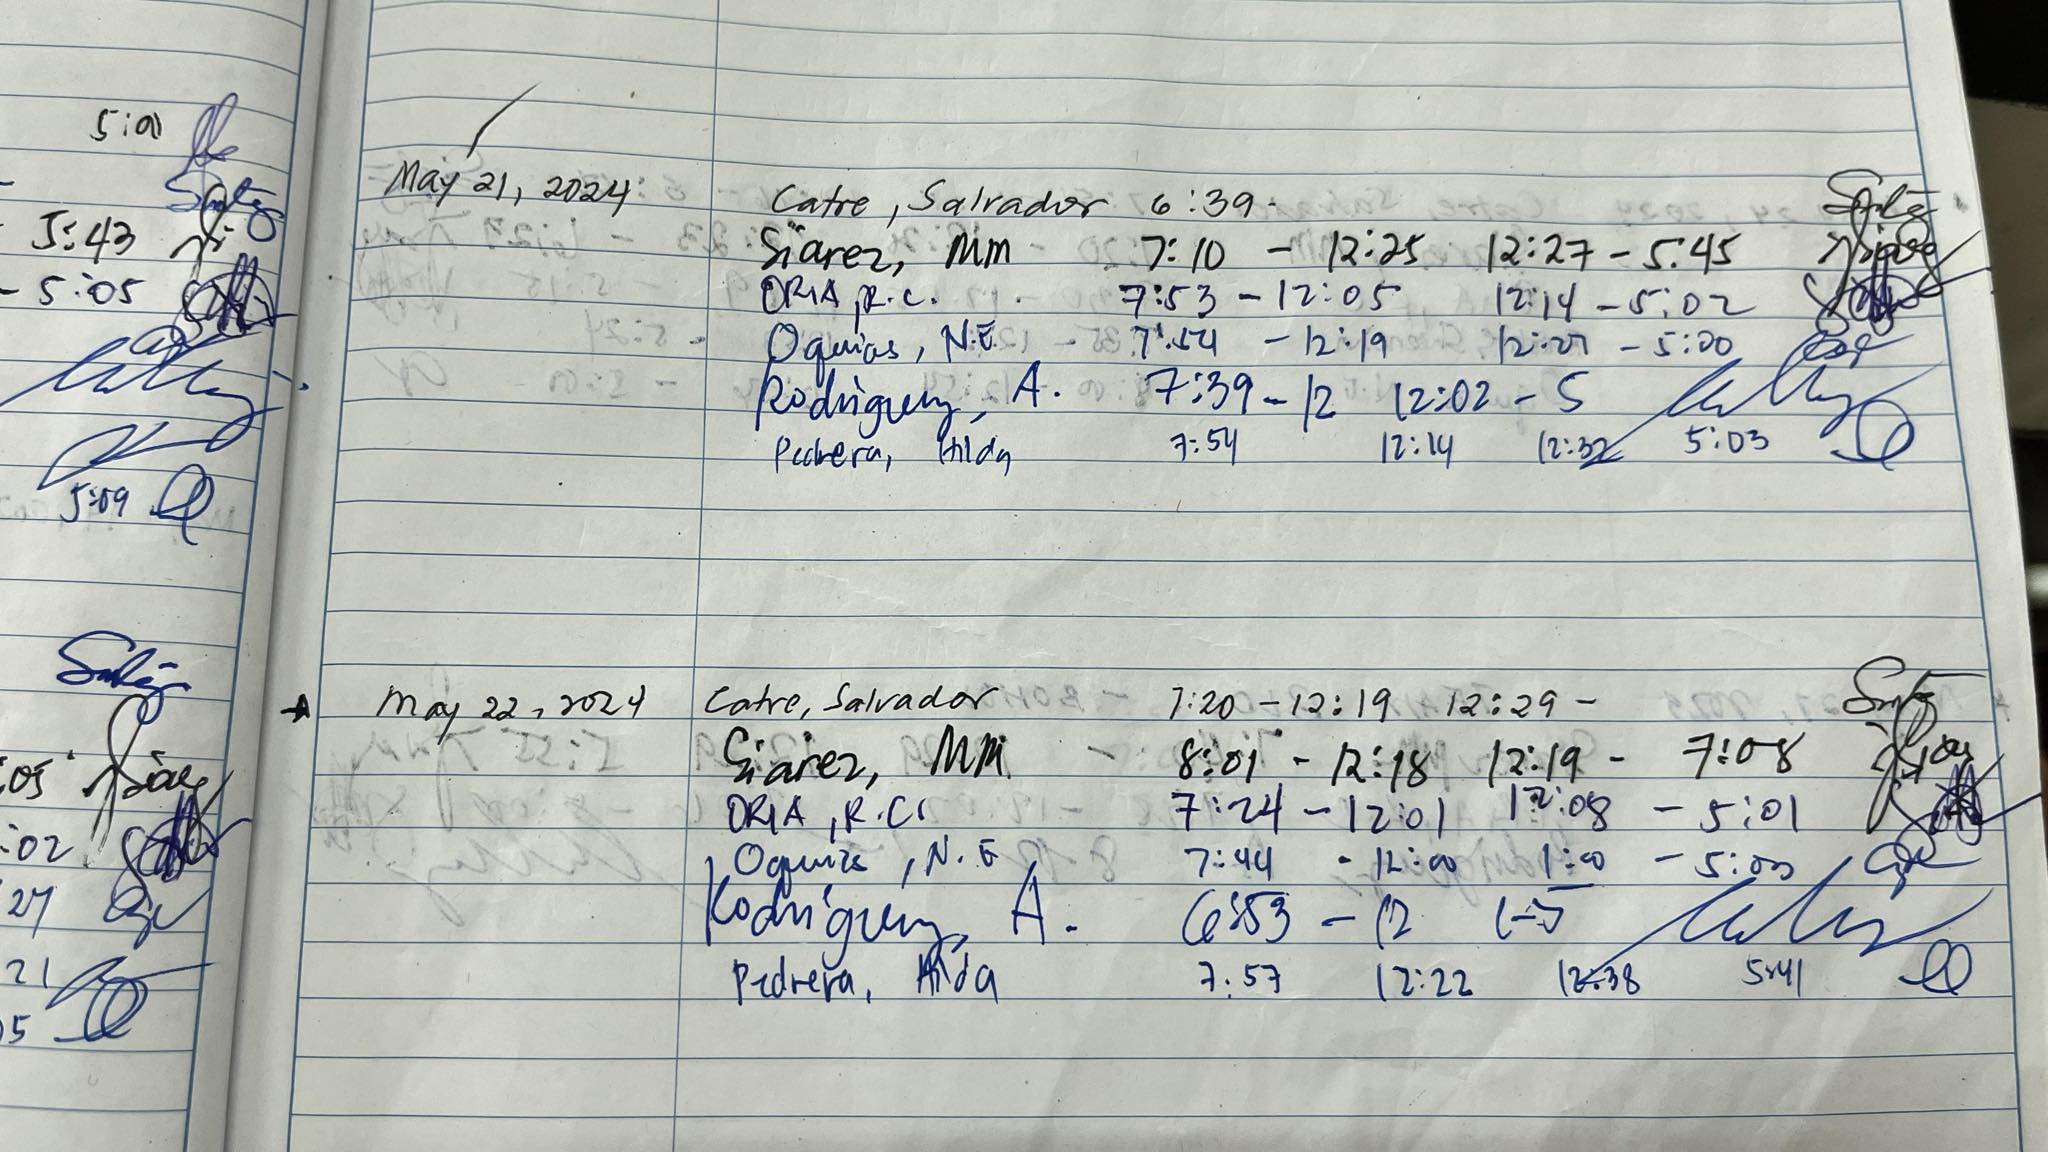 5:01
5:43
- 5:05
5:09
:05
:02
27
21
5
May 21, 2024
Catre, Salvador 6:39-
Siarez, MM 7:10 - 12:25 12:27 - 5:45
ORIA, R.C. 7:53 - 12:05 12:14 - 5:02
Oquias, N.E. 7:54 - 12:19 - 5:00
Rodriguez, A. 7:39 - 12 12:02 - 5
Pedrera, Hilda 7:54 12:14 12:32 5:03
May 22, 2024 Catre, Salvador 7:20 - 12:19 12:29 -
Siarez, MM 8:01 - 12:18 12:19 - 7:08
ORIA, R.C. 7:24 - 12:01 12:08 - 5:01
Oquias, N.E 7:44 - 12:00 1:00 - 5:00
Rodriguez, A. 6:53 - 12 1-5
Pedrera, Hilda 7:57 12:22 12:38 5:41